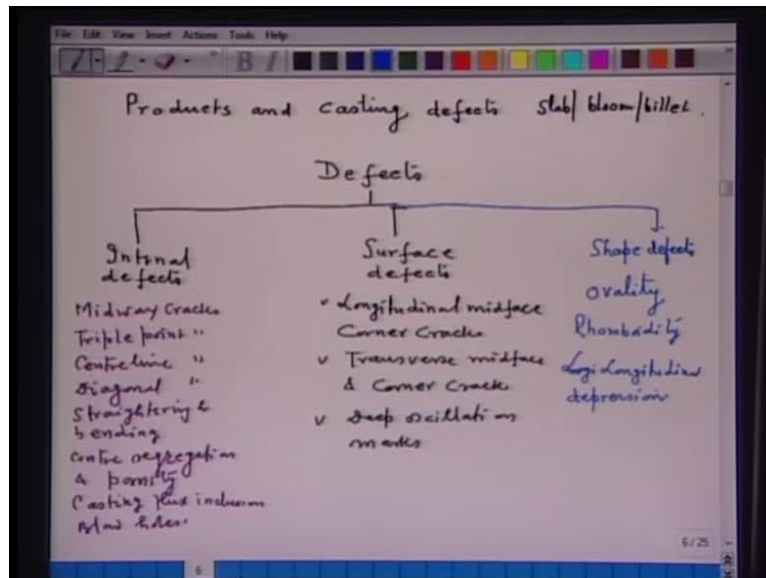 File Edit View Insert Actions Tools Help
B I
Products and casting defects slab/ bloom/billet.
Defects
Internal
defects
Midway Cracks
Triple point "
Centreline "
Diagonal "
Straightering &
bending
Centre segregation
& porosity
Casting flux inclusion
Blow holes.
Surface
defects
v Longitudinal midface
Corner Cracks
v Transverse midface
& Corner Crack
v Deep oscillation
marks
Shape defects
Ovality
Rhombadity
Logi Longitudinal
depression
6/25
6